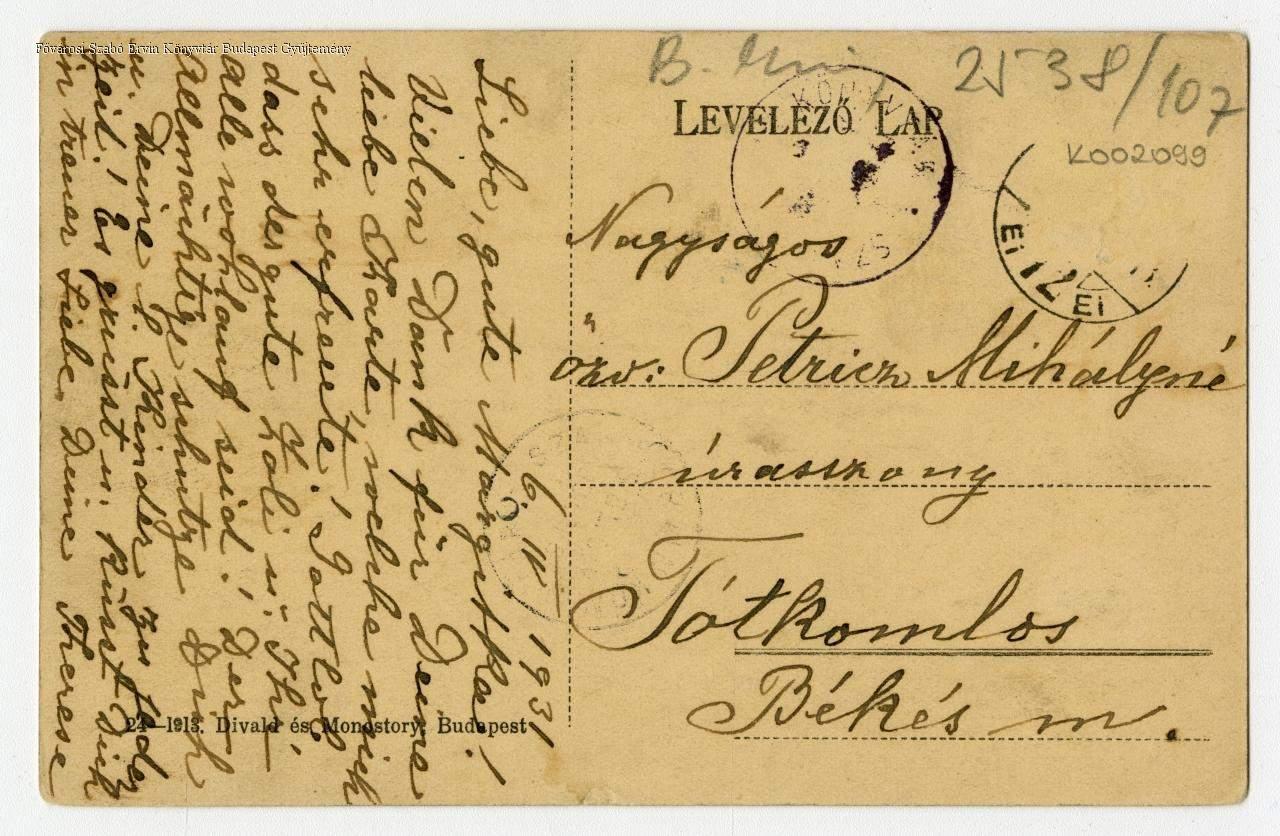 Fővárosi Szabó Ervin Könyvtár Budapest Gyűjtemény
2538/107
K002099
LEVELEZŐ LAP
Nagyságos
özv: Petricz Mihályné
úrasszony
Tótkomlos
Békés m.
6. IV 1931
Liebe, gute Margitka!
Vielen Dank für Deine
liebe Karte, welche mich
sehr erfreute! Gottlob
dass der gute Zoli u. Ihr
alle wohlauf seid! Der
Allmächtige schütze Dich
u. Deine l. Kinder zu jeder
Zeit! Es grüsst u. küsst Dich
in treuer Liebe Deine Therese
24—1913. Divald és Monostory, Budapest
12
EI
EI